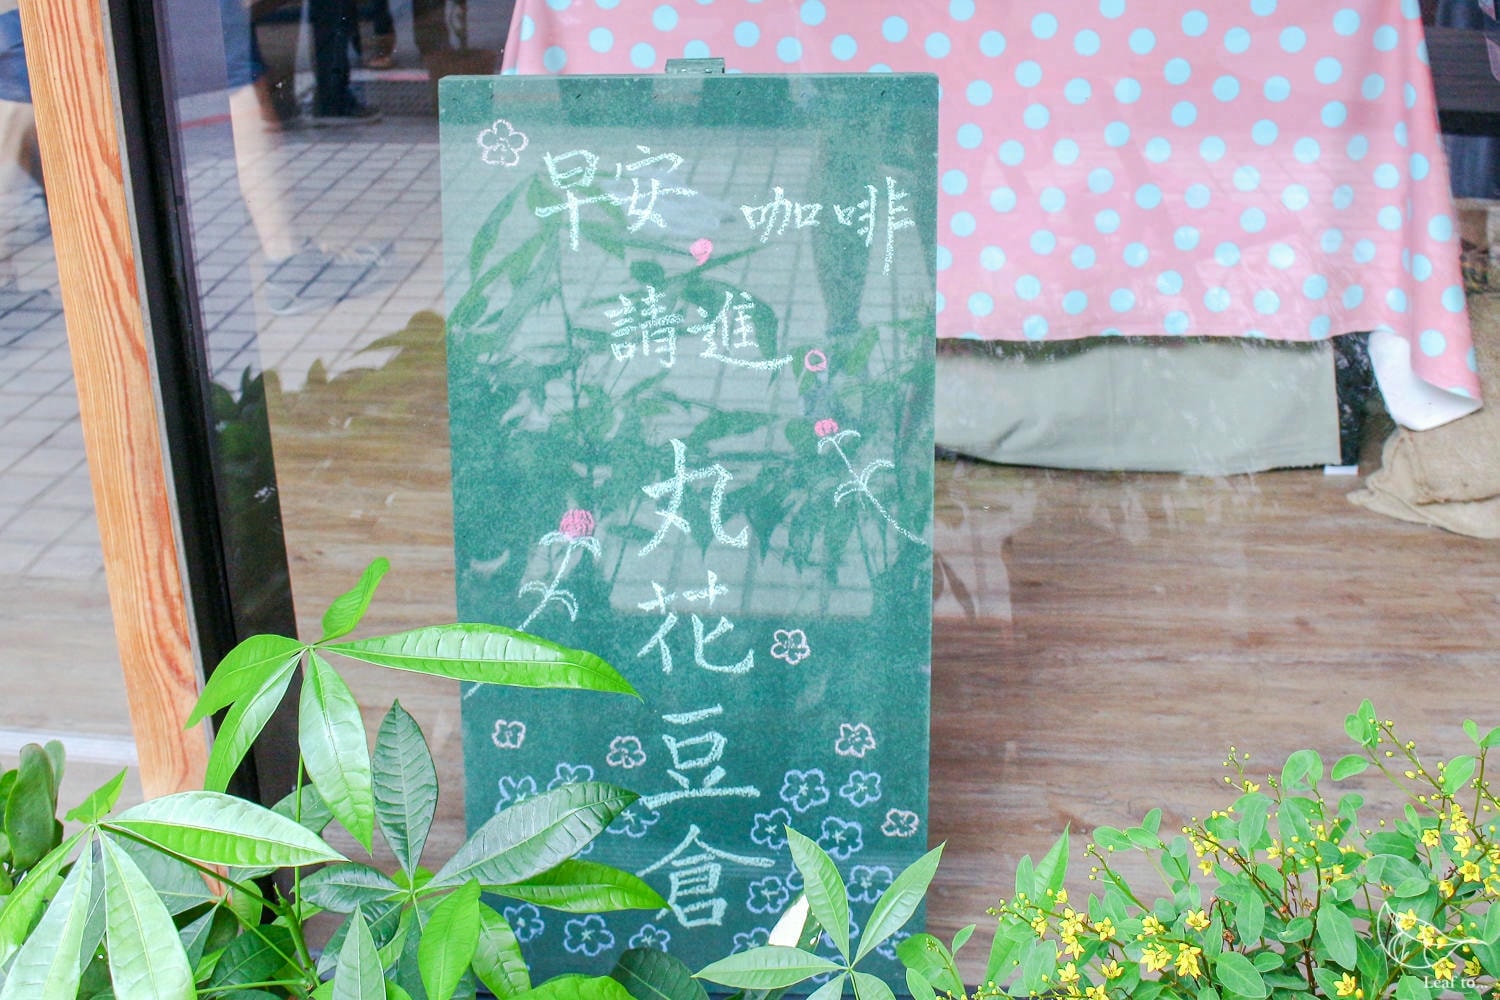 早安 咖啡
請進
丸花豆倉
Leaf to...